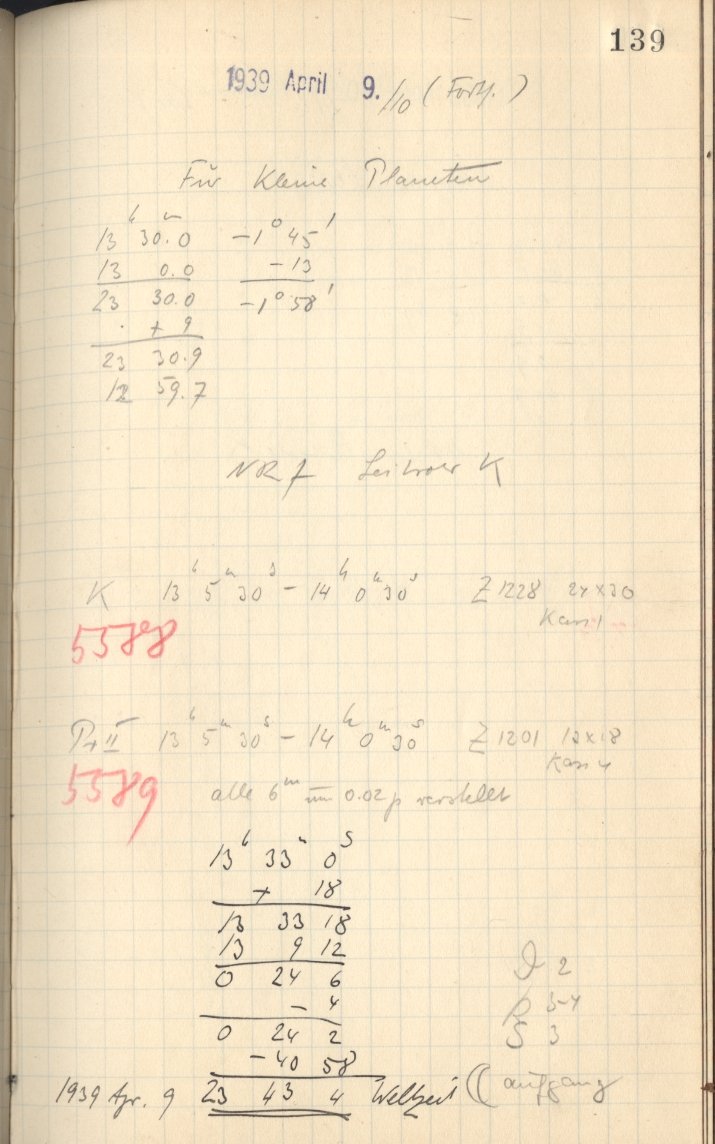 139
1939 April 9./10 (Forts.)
Für Kleine Planeten
13ʰ 30.0ᵐ −1° 45′
13 0.0 −13
23 30.0 −1° 58′
+ 9
23 30.9
12 59.7
K
K 13ʰ 5ᵐ 30ˢ − 14ʰ 0ᵐ 30ˢ Z 1228 24×30
Kass 1
5588
II 13ʰ 5ᵐ 30ˢ − 14ʰ 0ᵐ 30ˢ Z 1201 12×18
Kass 4
5589
alle 6ᵐ um 0.02 p verstellt
13ʰ 33ᵐ 0ˢ
+ 18
13 33 18
13 9 12
0 24 6 2
− 4 3-4
0 24 2 3
−40 58
1939 Apr. 9 23 43 4 Weltzeit ☾ aufgang